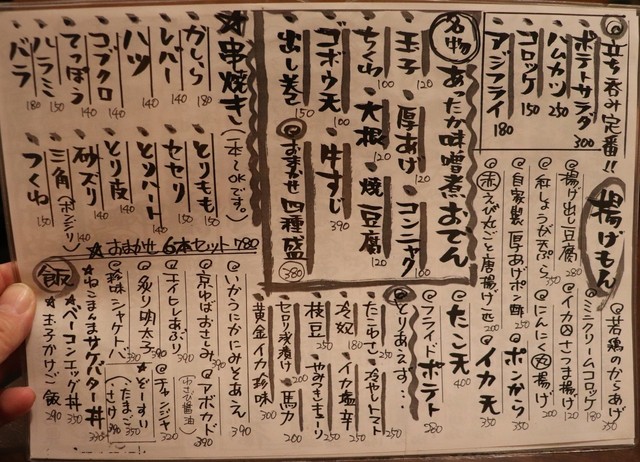 立ち呑み定番!!
ポテトサラダ 300
ハムカツ 250
コロッケ 150
アジフライ 180
名物
あったか味噌煮おでん
玉子 120
厚あげ 120
コンニャク 100
ちくわ 100
大根 120
焼豆腐 120
ゴボウ天 100
牛すじ 390
出し巻き 150
おまかせ四種盛 380
串焼き
(一本〜OKです。)
がしら 180
レバー 140
ハツ 140
コブクロ 140
てっぽう 140
ハラミ 150
バラ 180
とりもも 150
セセリ 150
とりハート 140
とり皮 140
砂ズリ 140
三角(ボンジリ) 150
つくね 150
★おまかせ6本セット 780
揚げもん
若鶏のからあげ 350
ミニクリームコロッケ 180
イカ入さつま揚げ 120
にんにく丸揚げ 200
ポンから 350
イカ天 350
揚げ出し豆腐 280
紅しょうが天ぷら 350
自家製厚あげポン酢 250
赤えび丸ごと唐揚げ一匹 200
たこ天 400
フライドポテト 280
とりあえず…
たこわさ 250
冷やしトマト 250
冷奴 180
イカ塩辛 250
枝豆 200
やみつききゅーり 250
セロリ浅漬け 200
馬力 200
黄金イカ珍味 300
いかうにかにみそあえ 390
京ゆばおさしみ 390
アボカド(わさび醤油) 390
エイヒレあぶり 390
チャンジャ 320
炙り明太子 390
珍味シャケトバ 390
ぞーすい(たまご 350 さけ 390)
飯
★ねこまんまサケバター丼 390
★ベーコンエッグ丼 350
★玉子かけご飯 290